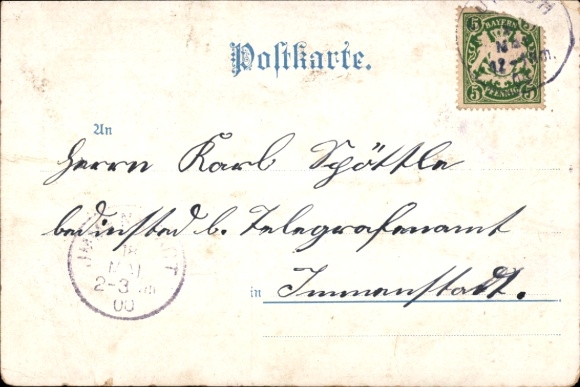 BAYERN
5 5
PFENNIG
Postkarte.
An
Herrn Karl Schöttle
bedinsted b. Telegrafenamt
in Immenstadt.
MAI
2-3
00